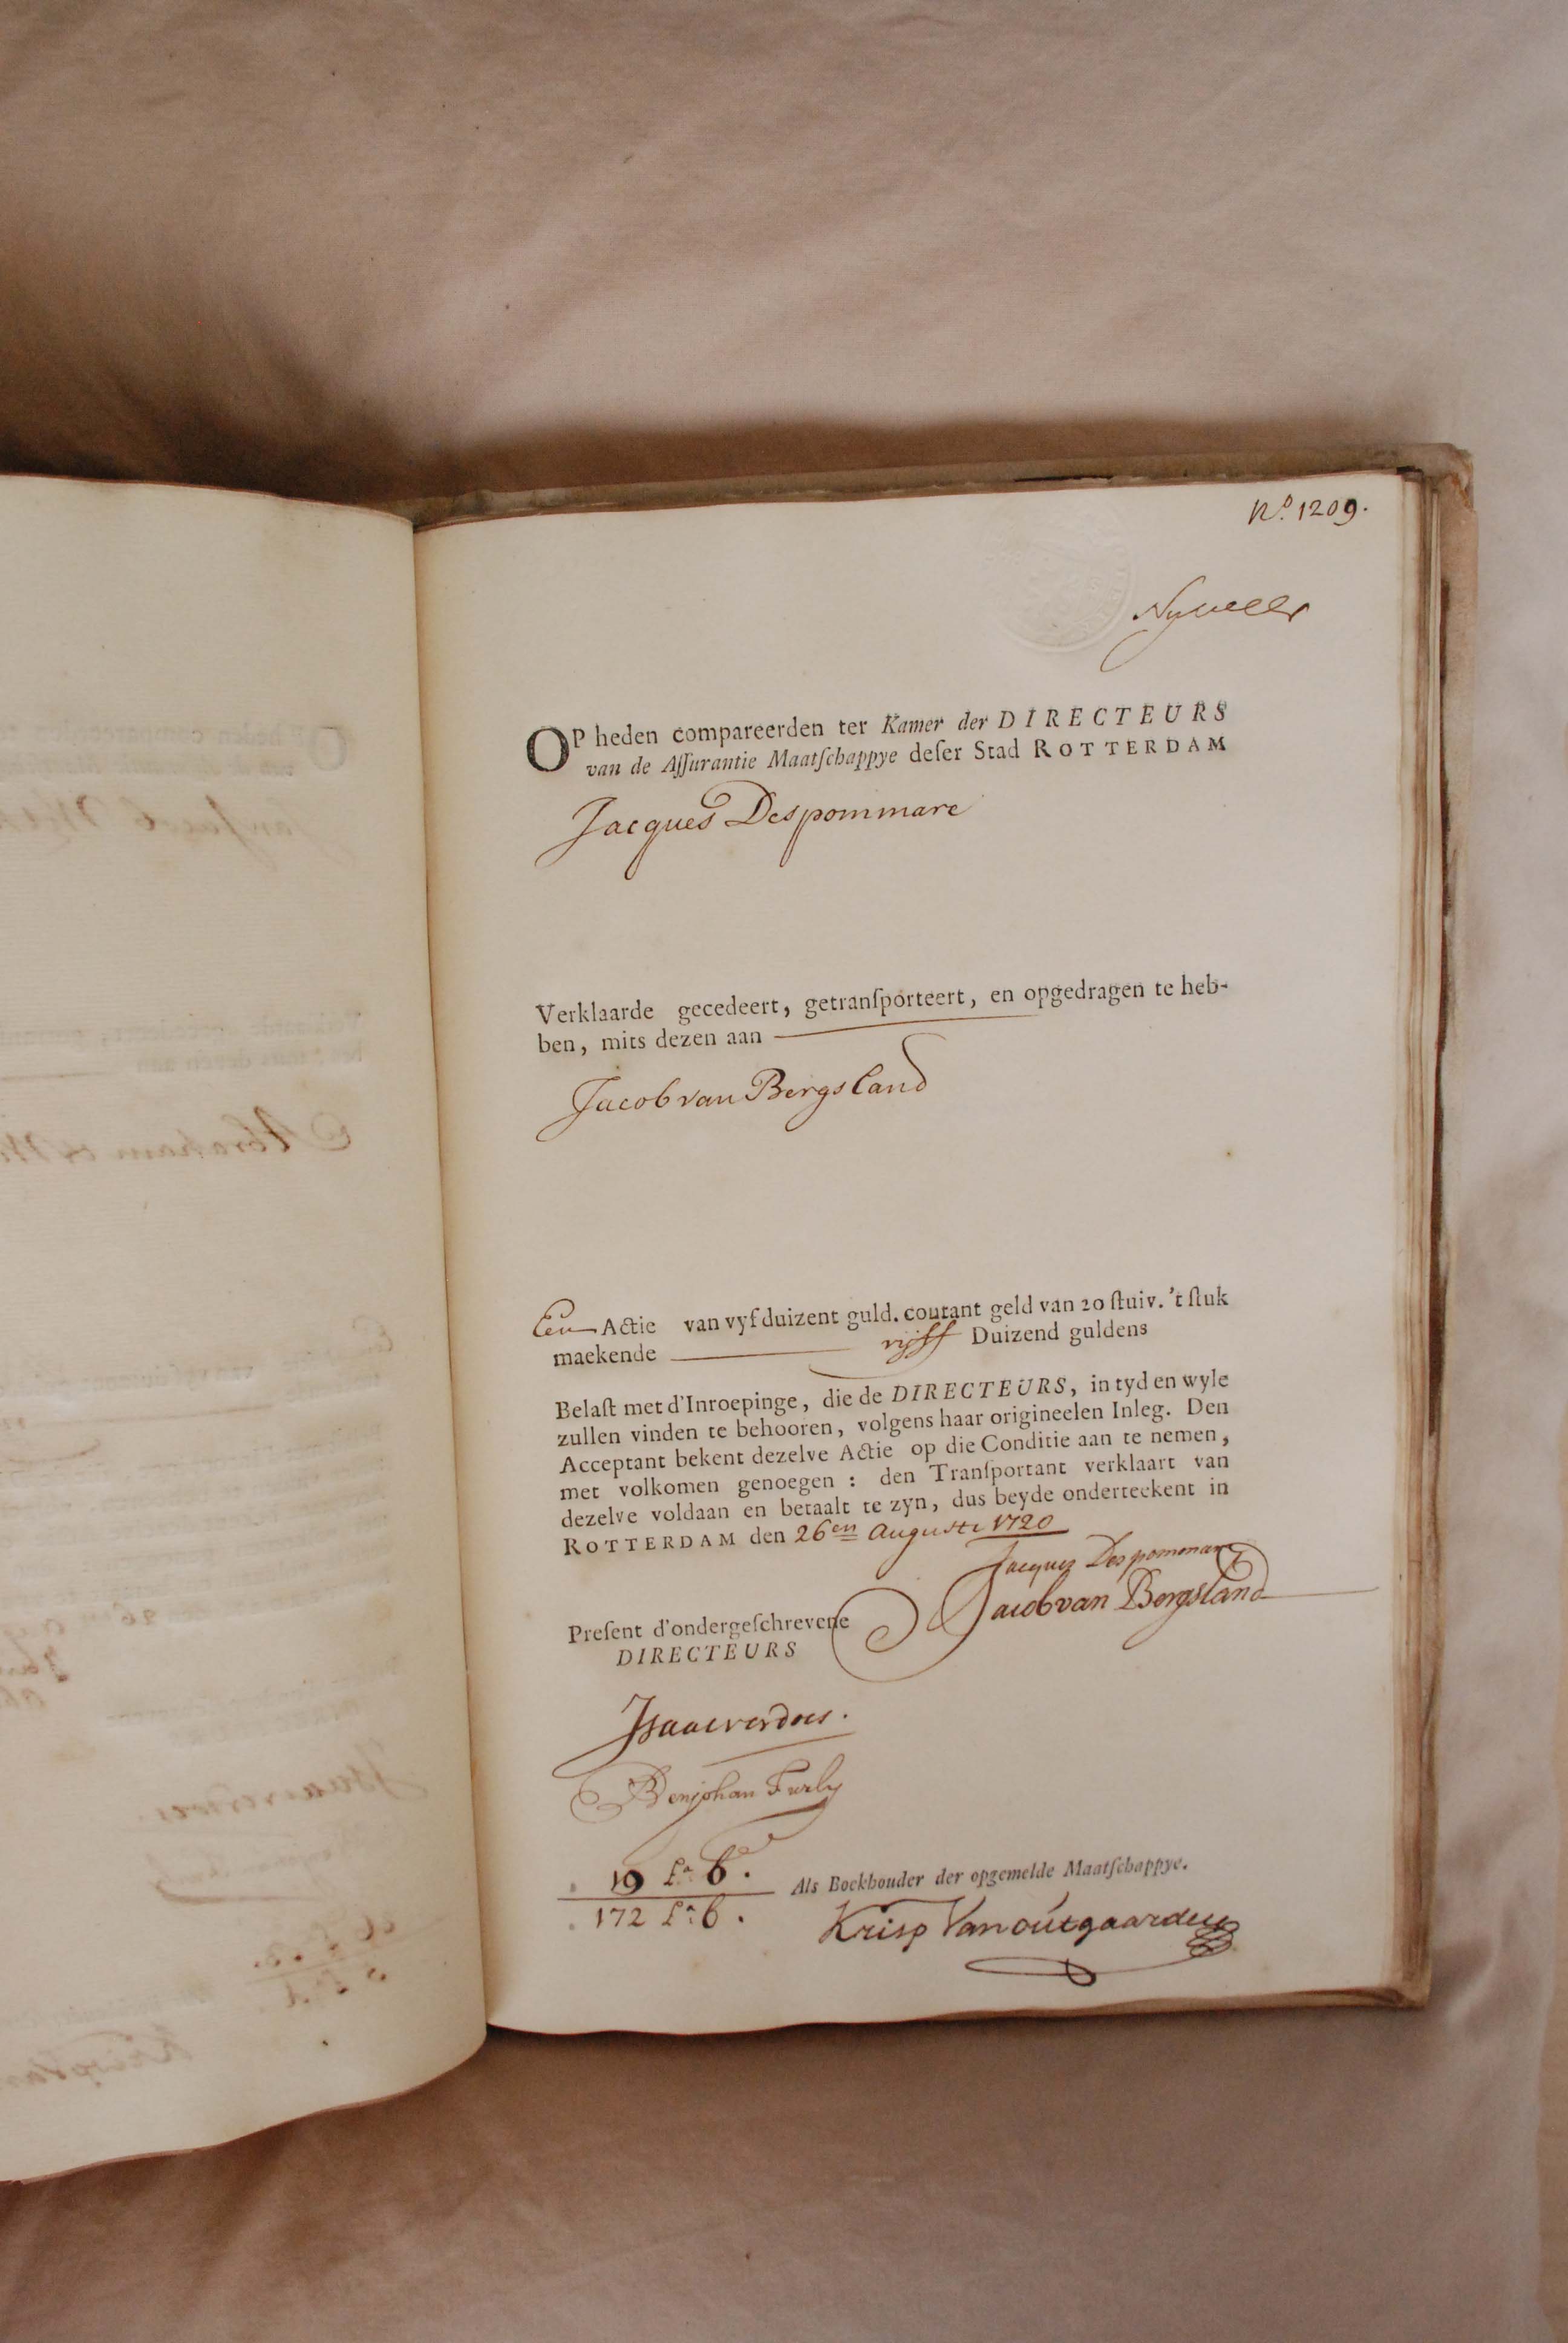 No. 1209.
Nyvelt
OP heden compareerden ter Kamer der DIRECTEURS
van de Assurantie Maatschappye deser Stad ROTTERDAM
Jacques Despommare
Verklaarde gecedeert, getransporteert, en opgedragen te heb-
ben, mits dezen aan
Jacob van Bergsland
Een Actie van vyf duizent guld. courant geld van 20 stuiv. 't stuk
maekende vijff Duizend guldens
Belast met d'Inroepinge, die de DIRECTEURS, in tyd en wyle
zullen vinden te behooren, volgens haar origineelen Inleg. Den
Acceptant bekent dezelve Actie op die Conditie aan te nemen,
met volkomen genoegen: den Transportant verklaart van
dezelve voldaan en betaalt te zyn, dus beyde onderteekent in
ROTTERDAM den 26en Augusti 1720
Jacques Despommare
Jacob van Bergsland
Present d'ondergeschrevene
DIRECTEURS
Isaac verdoes.
Benjohan Furly
19 La. 6.
172 La. 6.
Als Boekhouder der opgemelde Maatschappye.
Krisp Vanoutgaarden